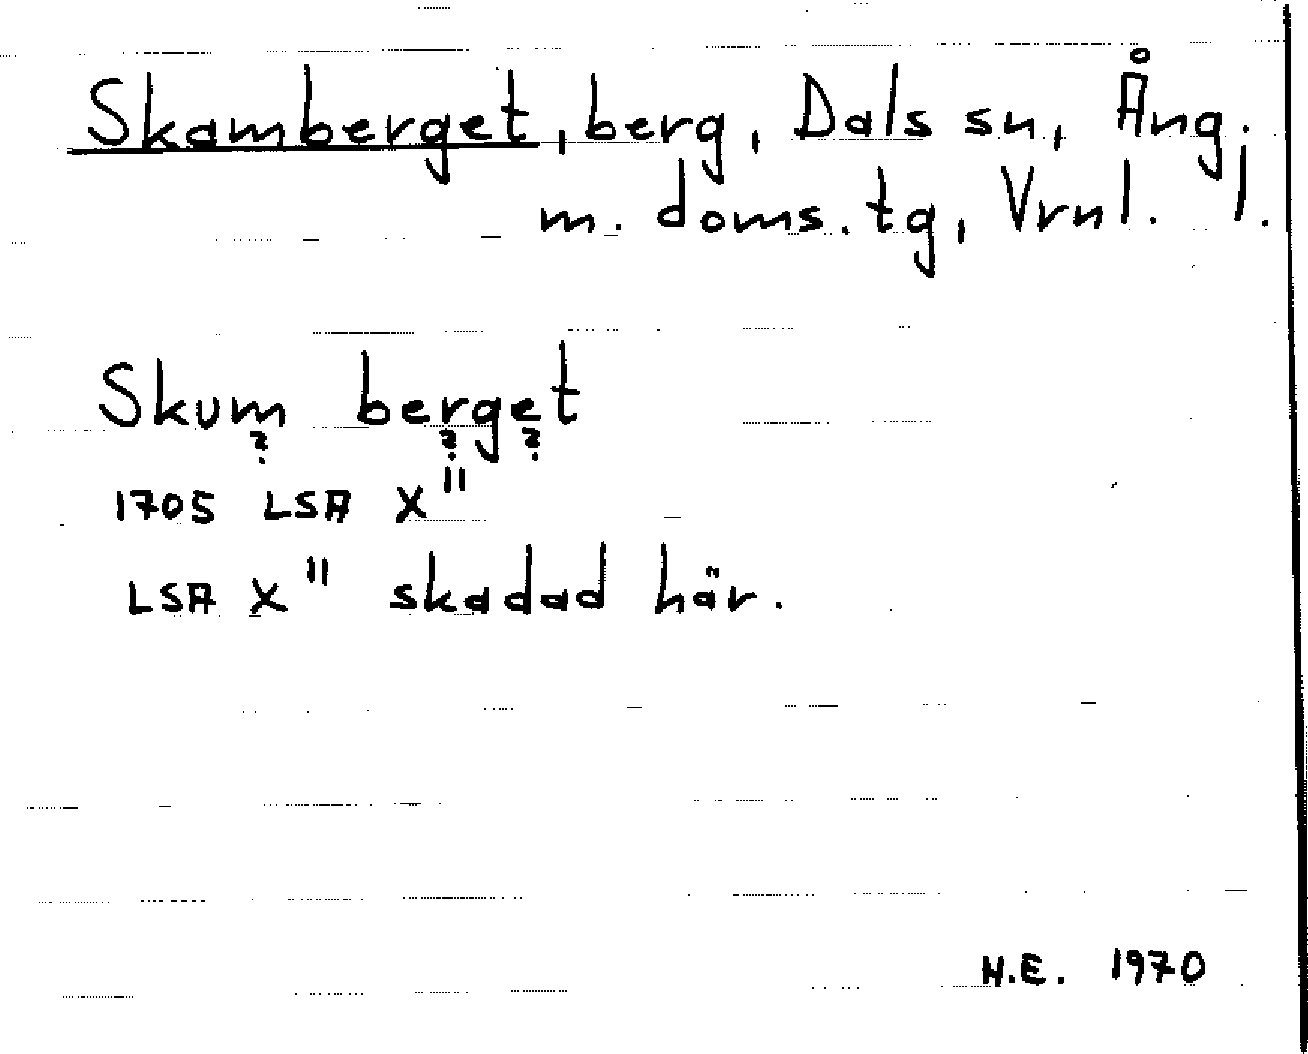 Skamberget, berg, Dals sn, Ång.
m. doms. tg, Vrnl. l.
Skum berget
? ? ?
1705 LSA X"
LSA X" skadad här.
H.E. 1970